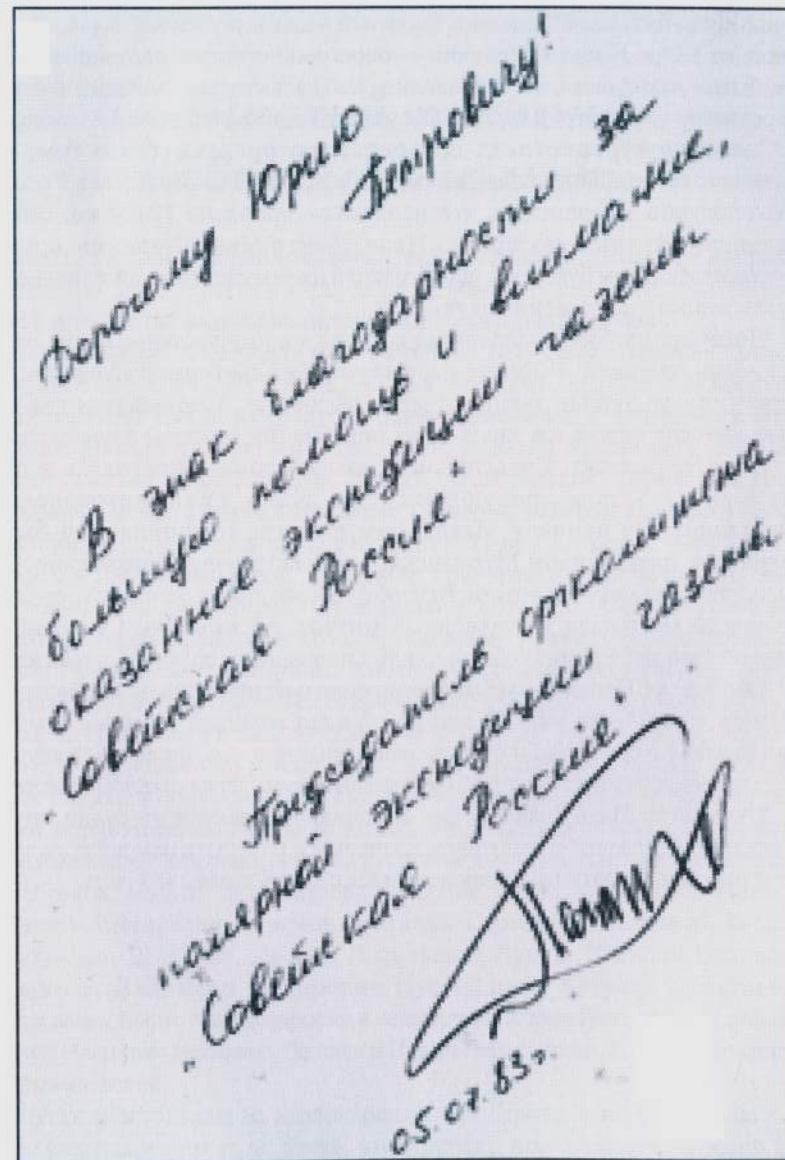 Дорогому Юрию
Петровичу!
В знак благодарности за
большую помощь и внимание,
оказанное экспедиции газеты
"Советская Россия"
Председатель оргкомитета
полярной экспедиции газеты
"Советская Россия"
05.07.83г.